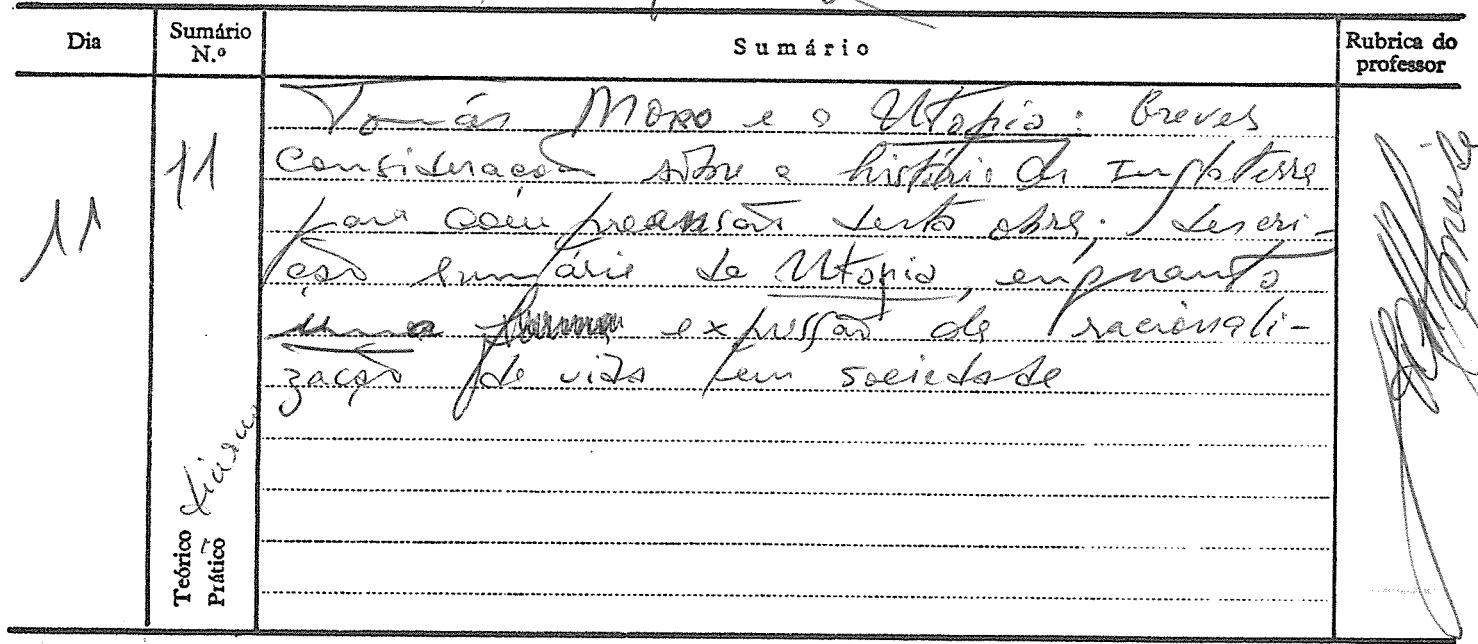 Dia
Sumário
N.º
Sumário
Rubrica do
professor
11
11
Tomás Moro e a Utopia: breves
considerações sôbre a história da Inglaterra
para compreensão desta obra; descri-
ção sumária da Utopia, enquanto
uma expressão da racionali-
zação da vida em sociedade
Teórico
Prático